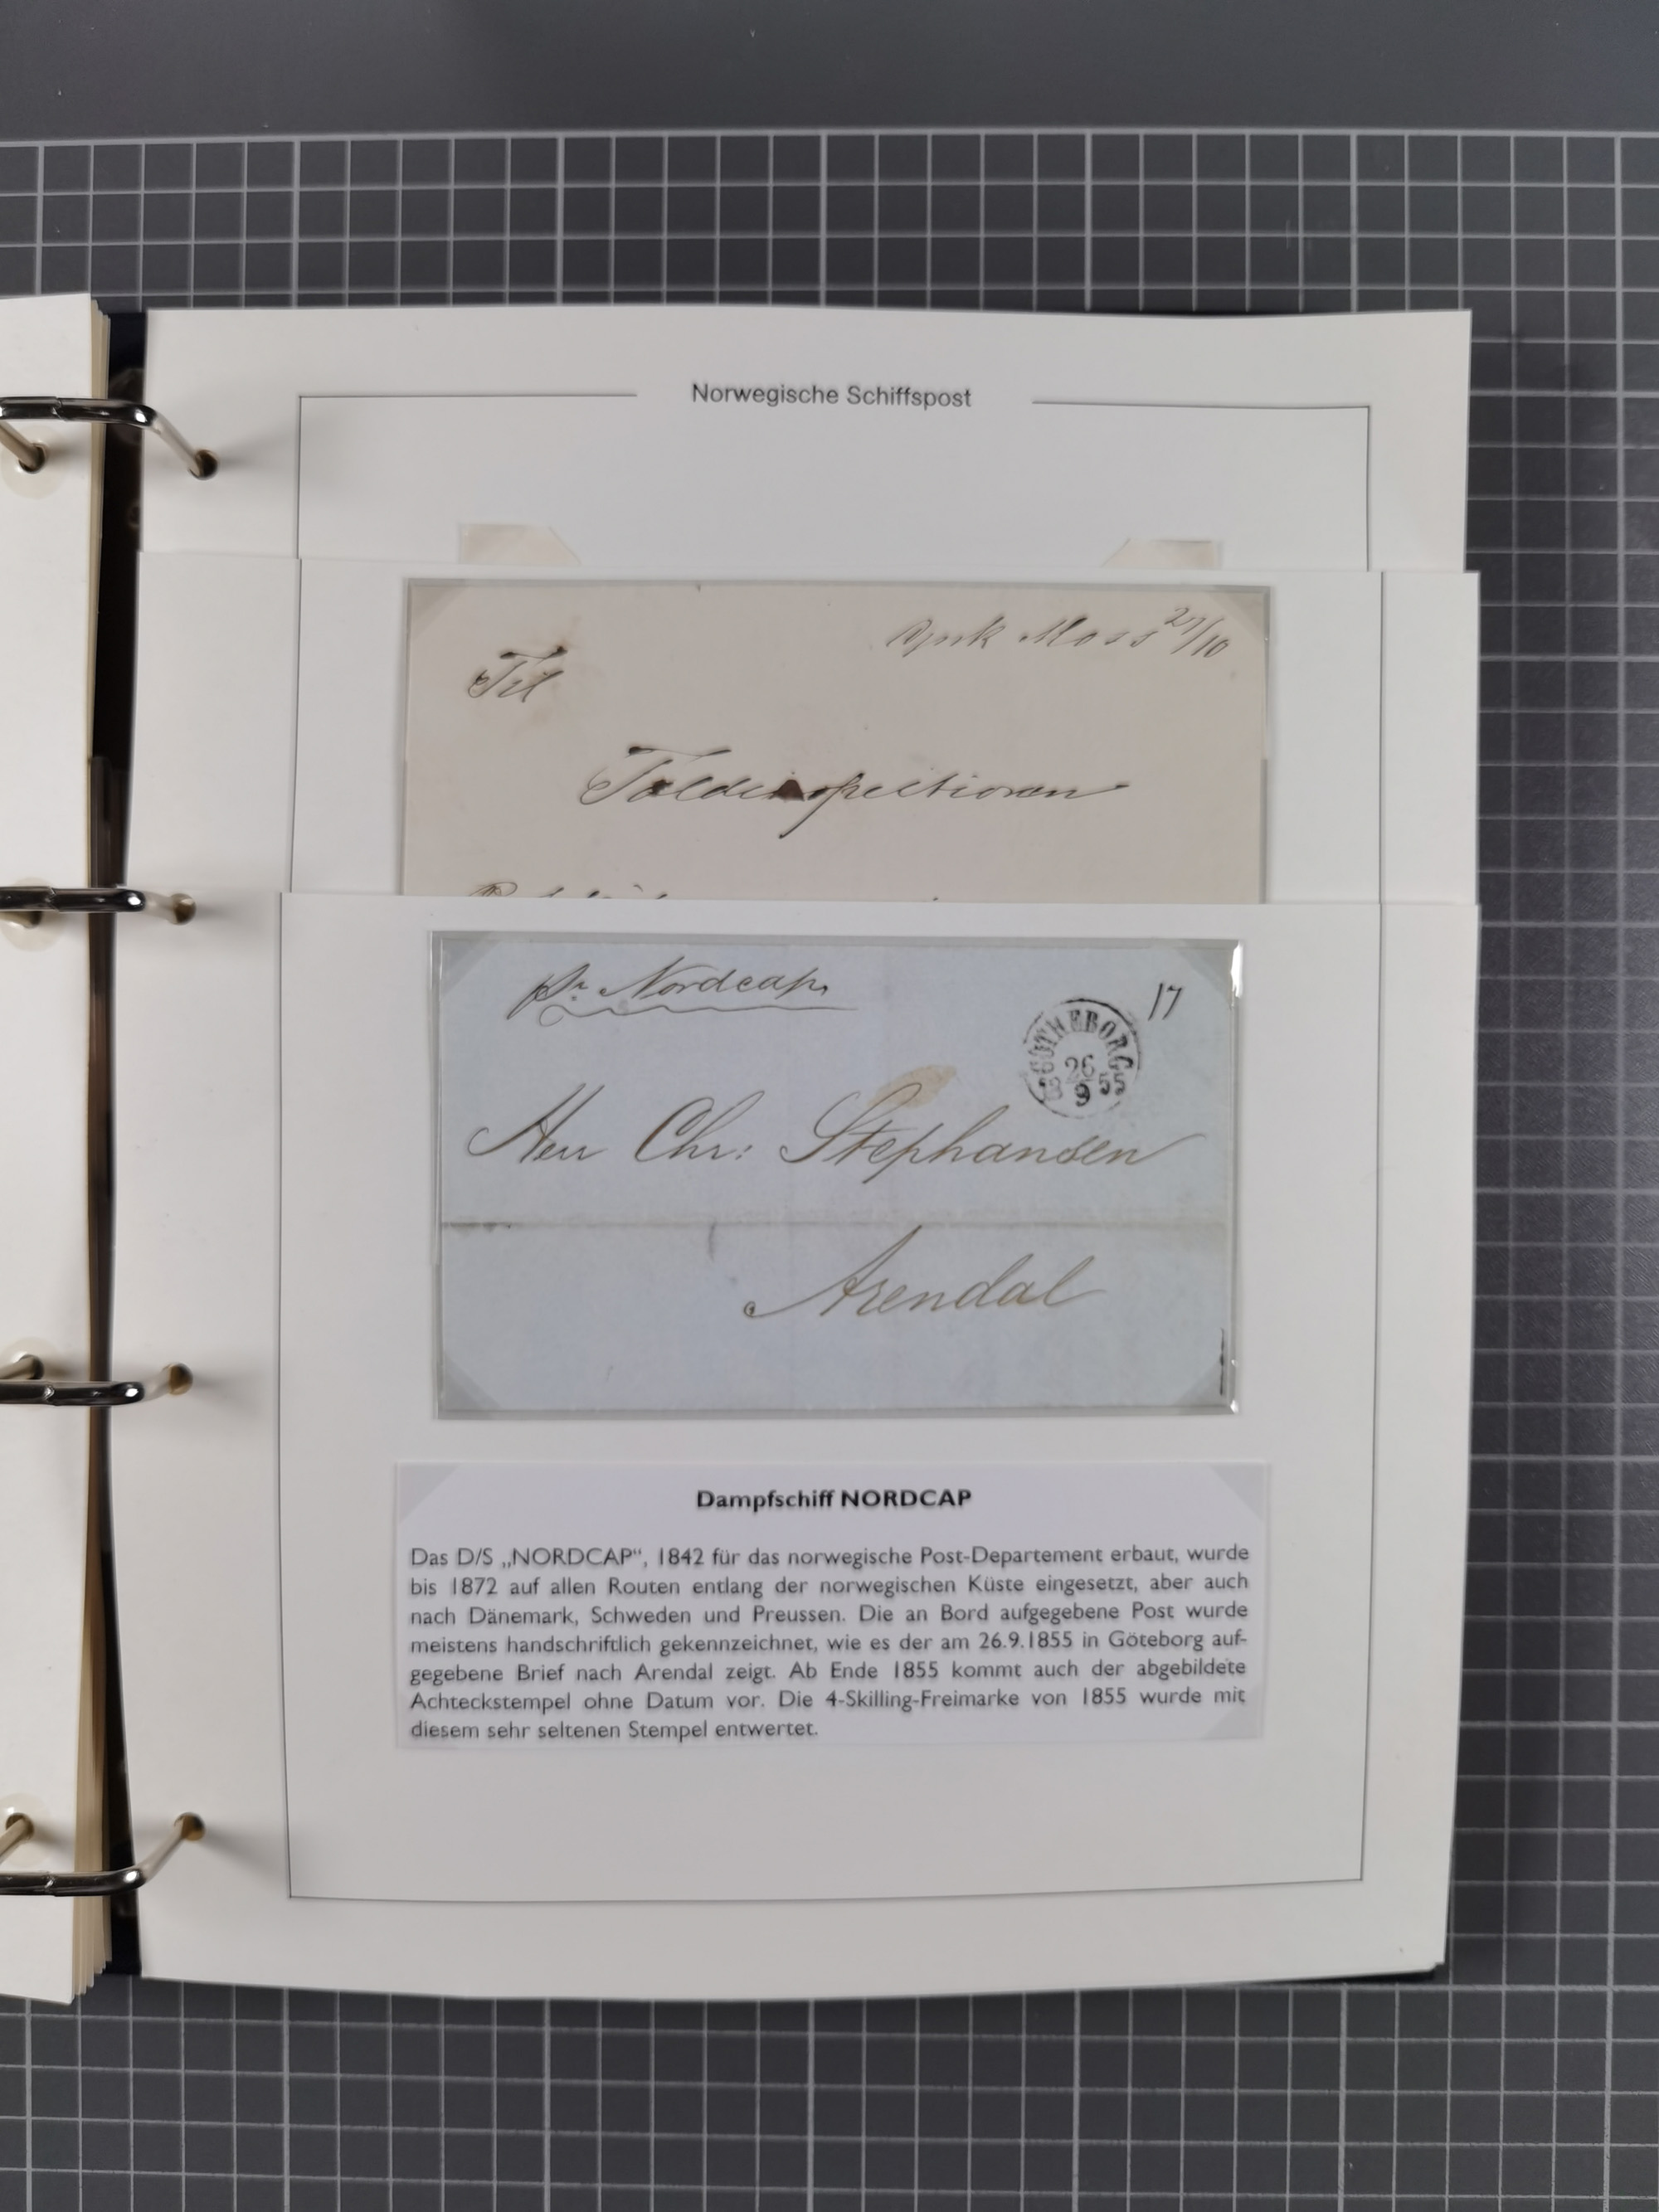 Norwegische Schiffspost
Moss 27/10
Til
Toldinspectionen
pr Nordcap
17
GÖTHEBORG
26
9
1855
Herr Chr: Stephansen
Arendal
Dampfschiff NORDCAP
Das D/S „NORDCAP“, 1842 für das norwegische Post-Departement erbaut, wurde
bis 1872 auf allen Routen entlang der norwegischen Küste eingesetzt, aber auch
nach Dänemark, Schweden und Preussen. Die an Bord aufgegebene Post wurde
meistens handschriftlich gekennzeichnet, wie es der am 26.9.1855 in Göteborg auf-
gegebene Brief nach Arendal zeigt. Ab Ende 1855 kommt auch der abgebildete
Achteckstempel ohne Datum vor. Die 4-Skilling-Freimarke von 1855 wurde mit
diesem sehr seltenen Stempel entwertet.